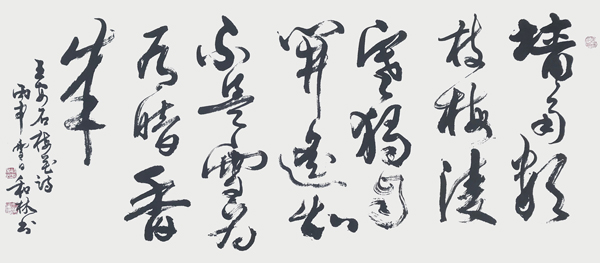 墙角数
枝梅凌
寒独自
開遥知
不是雪为
有暗香
来
王安石梅花诗
丙申冬日和林书